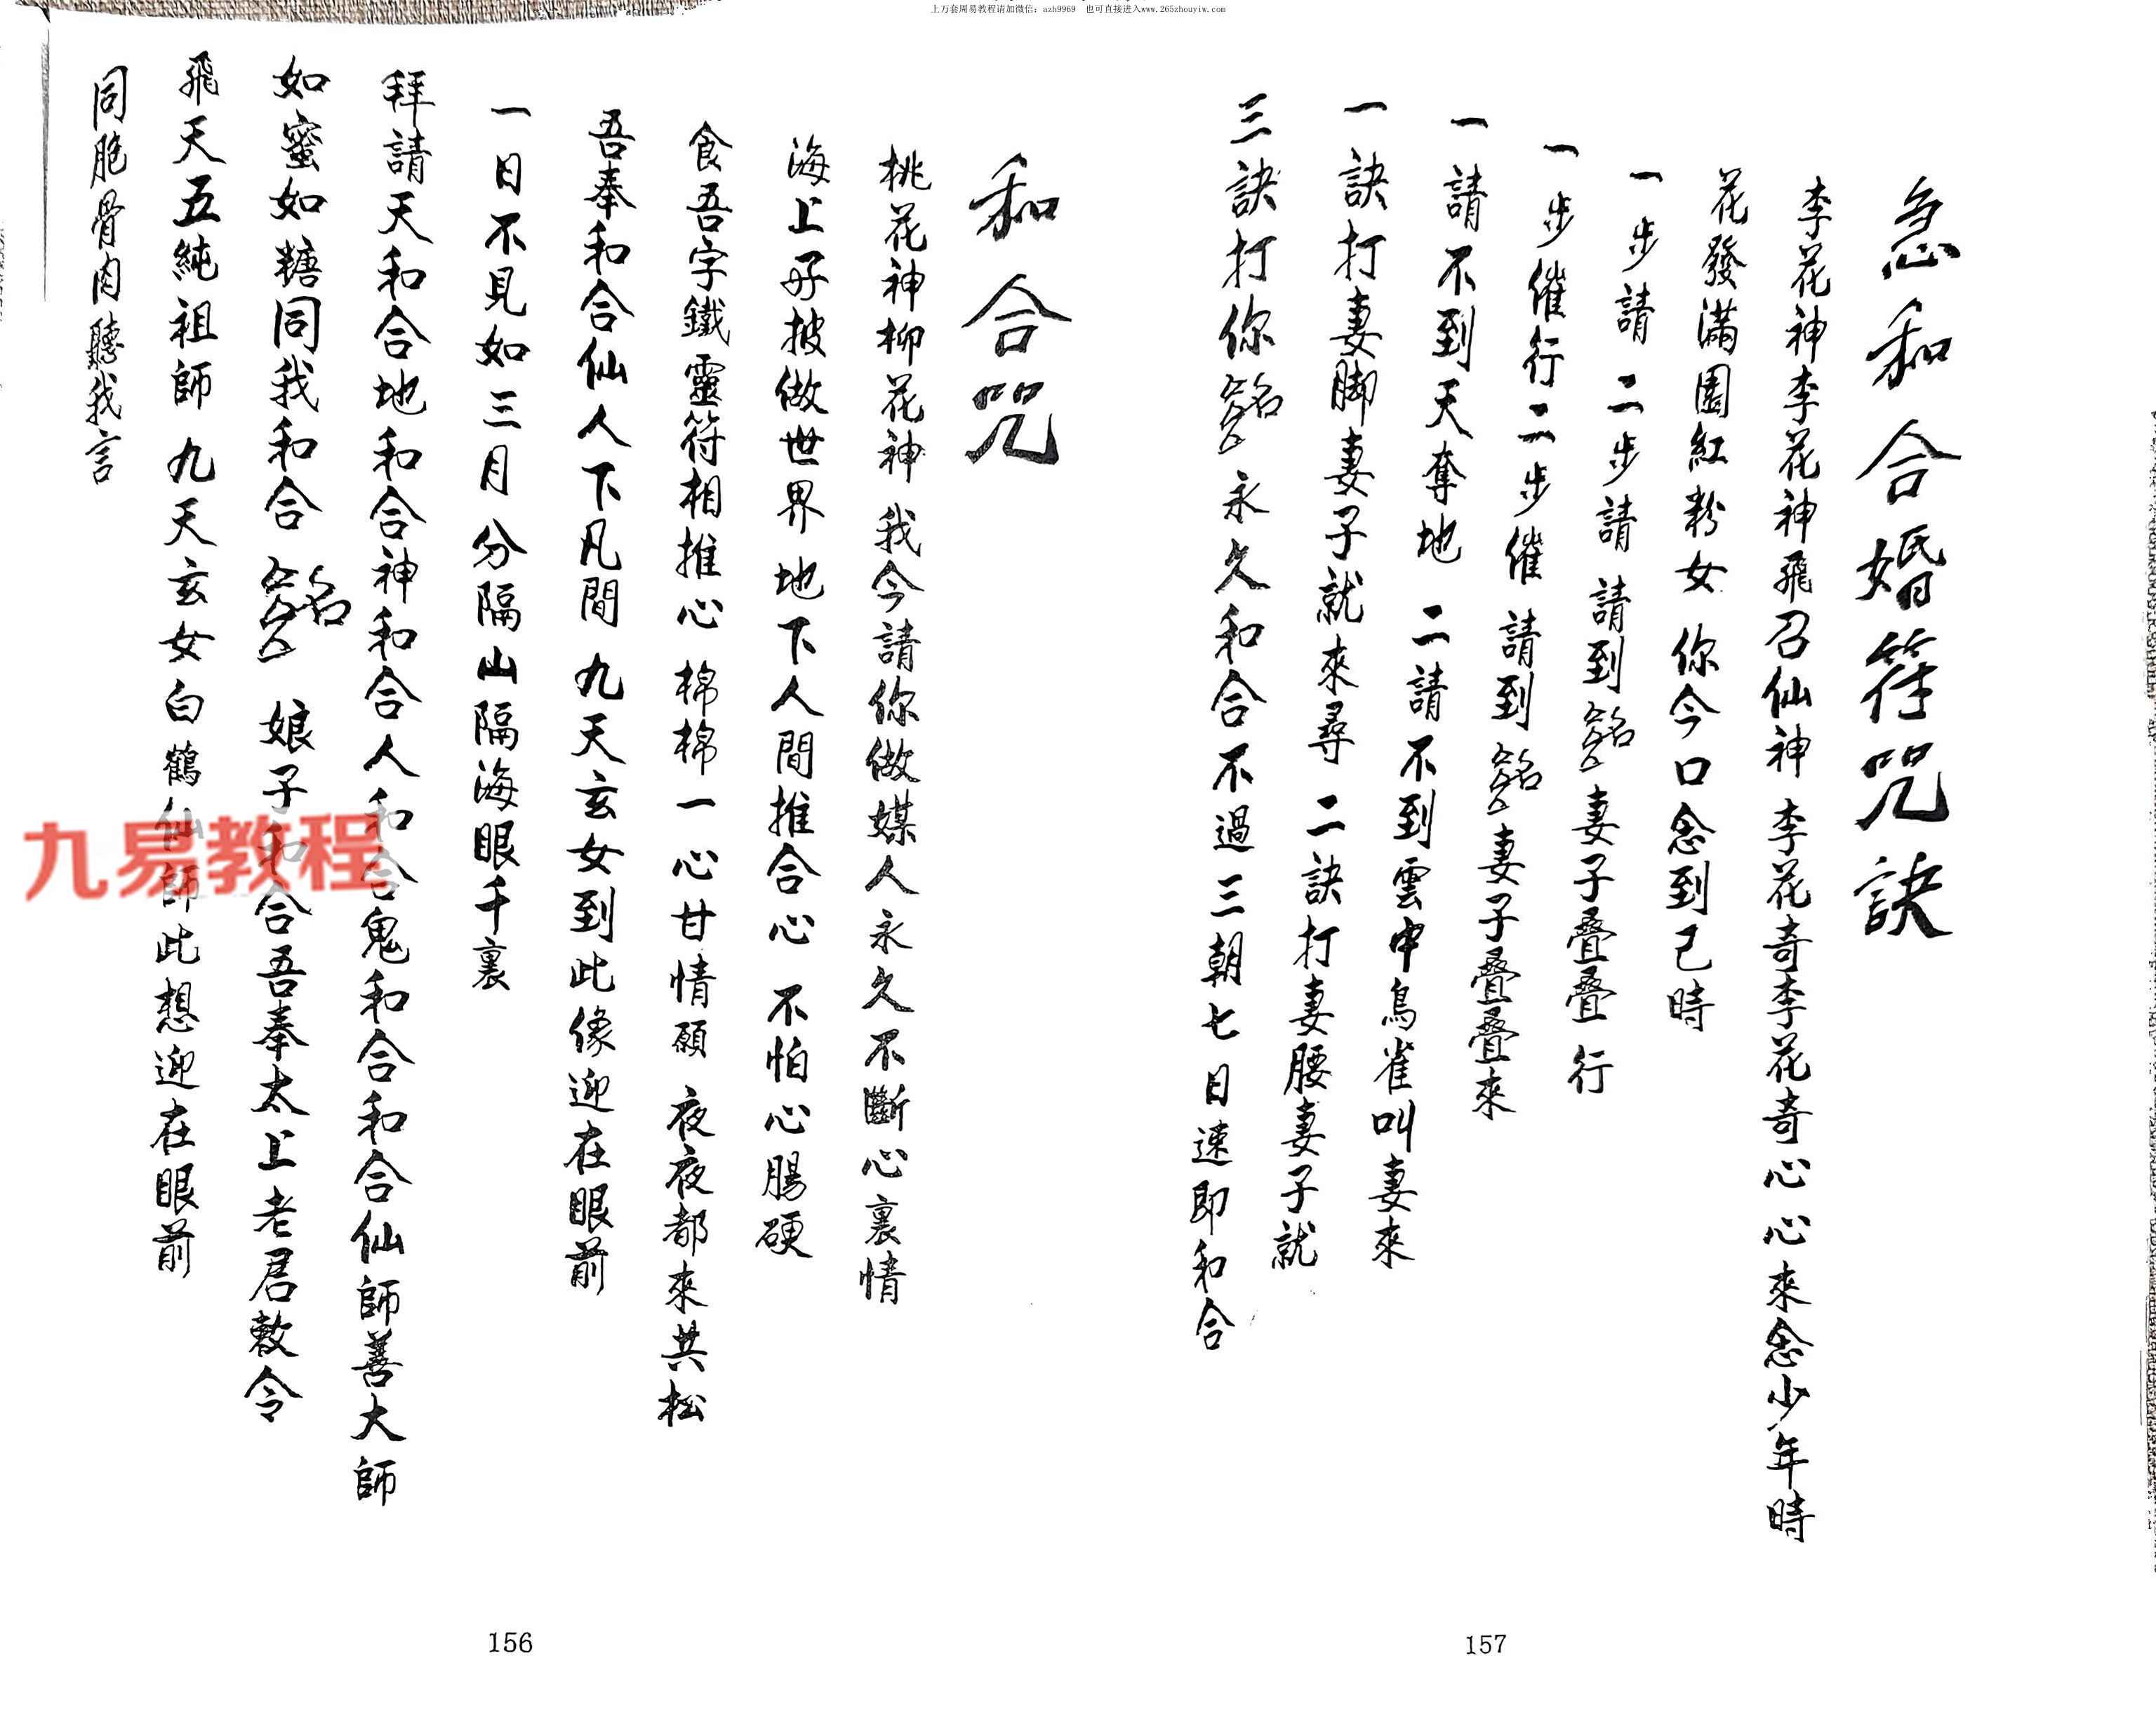 上万套周易教程请加微信：azh9969　也可直接进入www.265zhouyiw.com
急和合婚符咒訣
李花神李花神飛召仙神 李花奇李花奇心心來念少年時
花發滿園紅粉女 你今口念到己時
一步請二步請 請到 妻子叠叠行
一步催行二步催 請到 妻子叠叠來
一請不到天奪地 二請不到雲中鳥雀叫妻來
一訣打妻脚妻子就來尋 二訣打妻腰妻子就
三訣打你 永久和合不過三朝七日速即和合
和合咒
桃花神柳花神 我今請你做媒人永久不斷心裏情
海上好披做世界 地下人間推合心 不怕心腸硬
食吾字鐵靈符相推心 棉棉一心甘情願 夜夜都來共松
吾奉和合仙人下凡間 九天玄女到此像迎在眼前
一日不見如三月 分隔山隔海眼千裏
拜請天和合地和合神和合人和合鬼和合和合仙師善大師
如蜜如糖同我和合 娘子和合吾奉太上老君敕令
飛天五純祖師 九天玄女白鶴仙師此想迎在眼前
同胞骨肉聽我言
九易教程
156
157